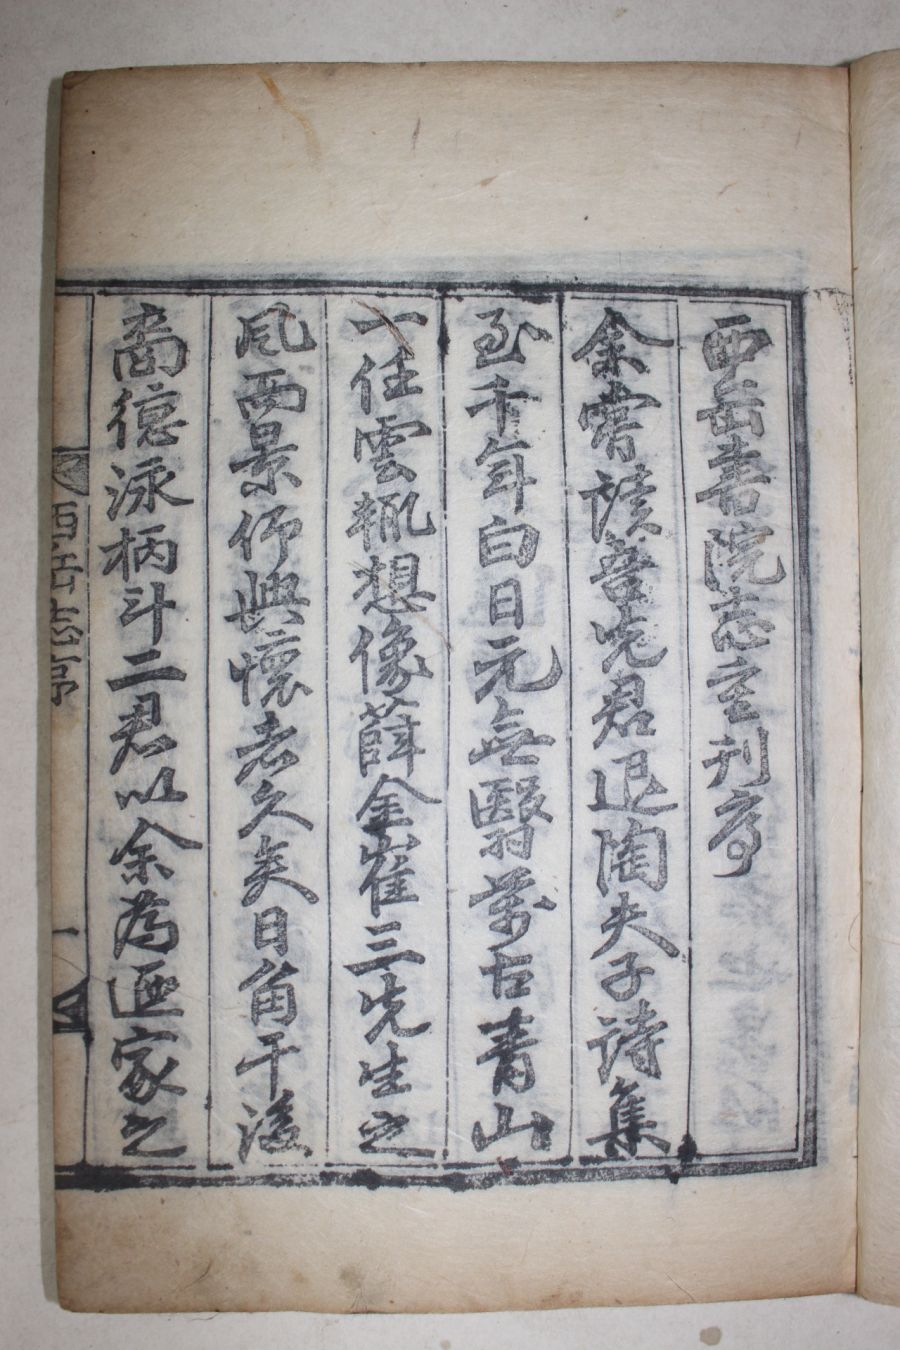 西岳書院志重刊序
余嘗讀吾先君退陶夫子詩集
至千年白日元無翳萬古青山
一任雲輒想像薛金崔三先生之
風而景仰興懷者久矣日角干後
裔德泳柄斗二君以余爲匪家之
西岳志序
一